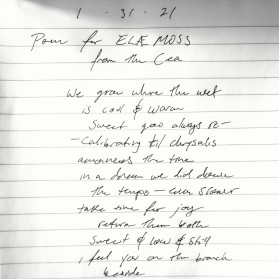 1 · 31 · 21
Poem for ELÆ MOSS
from the Cea
we grow where the wet
is cool & warm
Sweet goo always re-
-Calibrating til chrysalis
announces the time
in a dream we did
the tempo — even slower
take time for joy
return them both
Sweet & low & still
i feel you on the branch
beside